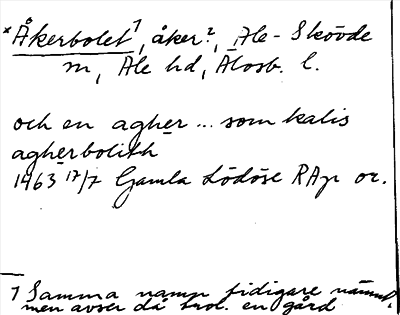 *Åkerbolet¹, åker?, Ale-Skövde
m, Ale hd, Älvsb. l.
och en agher ... som kalis
agherbolith
1463 17/7 Gamla Lödöse RAp or.
1 Samma namn tidigare nämnt,
men avser då trol. en gård